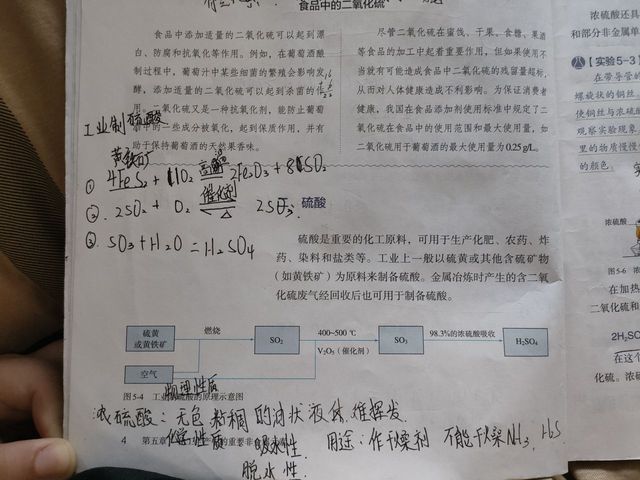 食品中的二氧化硫
食品中添加适量的二氧化硫可以起到漂
白、防腐和抗氧化等作用。例如，在葡萄酒酿
制过程中，葡萄汁中某些细菌的繁殖会影响发
酵，添加适量的二氧化硫可以起到杀菌的作
用。二氧化硫又是一种抗氧化剂，能防止葡萄
酒中的一些成分被氧化，起到保质作用，并有
助于保持葡萄酒的天然果香味。
尽管二氧化硫在蜜饯、干果、食糖、果酒
等食品的加工中起着重要作用，但如果使用不
当就有可能造成食品中二氧化硫的残留量超标，
从而对人体健康造成不利影响。为保证消费者
健康，我国在食品添加剂使用标准中规定了二
氧化硫在食品中的使用范围和最大使用量，如
二氧化硫用于葡萄酒的最大使用量为0.25 g/L。
工业制硫酸
黄铁矿
① 4FeS₂ + 11O₂ 高温 2Fe₂O₃ + 8SO₂
②. 2SO₂ + O₂ 催化剂 △ 2SO₃.
③. SO₃ + H₂O = H₂SO₄
硫酸
硫酸是重要的化工原料，可用于生产化肥、农药、炸
药、染料和盐类等。工业上一般以硫黄或其他含硫矿物
（如黄铁矿）为原料来制备硫酸。金属冶炼时产生的含二氧
化硫废气经回收后也可用于制备硫酸。
硫黄
或黄铁矿
燃烧
SO₂
400~500 ℃
V₂O₅（催化剂）
SO₃
98.3%的浓硫酸吸收
H₂SO₄
空气
图5-4 工业制硫酸的原理示意图
物理性质
浓硫酸：无色粘稠的油状液体.难挥发.
化学性质 吸水性. 用途：作干燥剂 不能干燥NH₃, H₂S.
脱水性.
4 第五章
浓硫酸还具
和部分非金属单
【实验5-3】
在带导管的
螺旋状的铜丝。
使铜丝与浓硫
观察实验现象
里的物质慢慢
的颜色。
浓硫酸
图5-6
在加热
二氧化硫和
2H₂SO
在这个
化硫。浓硫